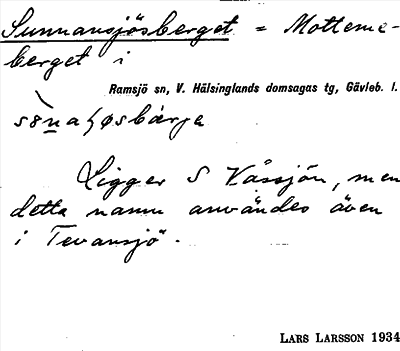 Sunnansjösberget = Motteme-
berget i
Ramsjö sn, V. Hälsinglands domsagas tg, Gävleb. l.
Ligger S Våssjön, men
detta namn användes även
i Tevansjö.
LARS LARSSON 1934